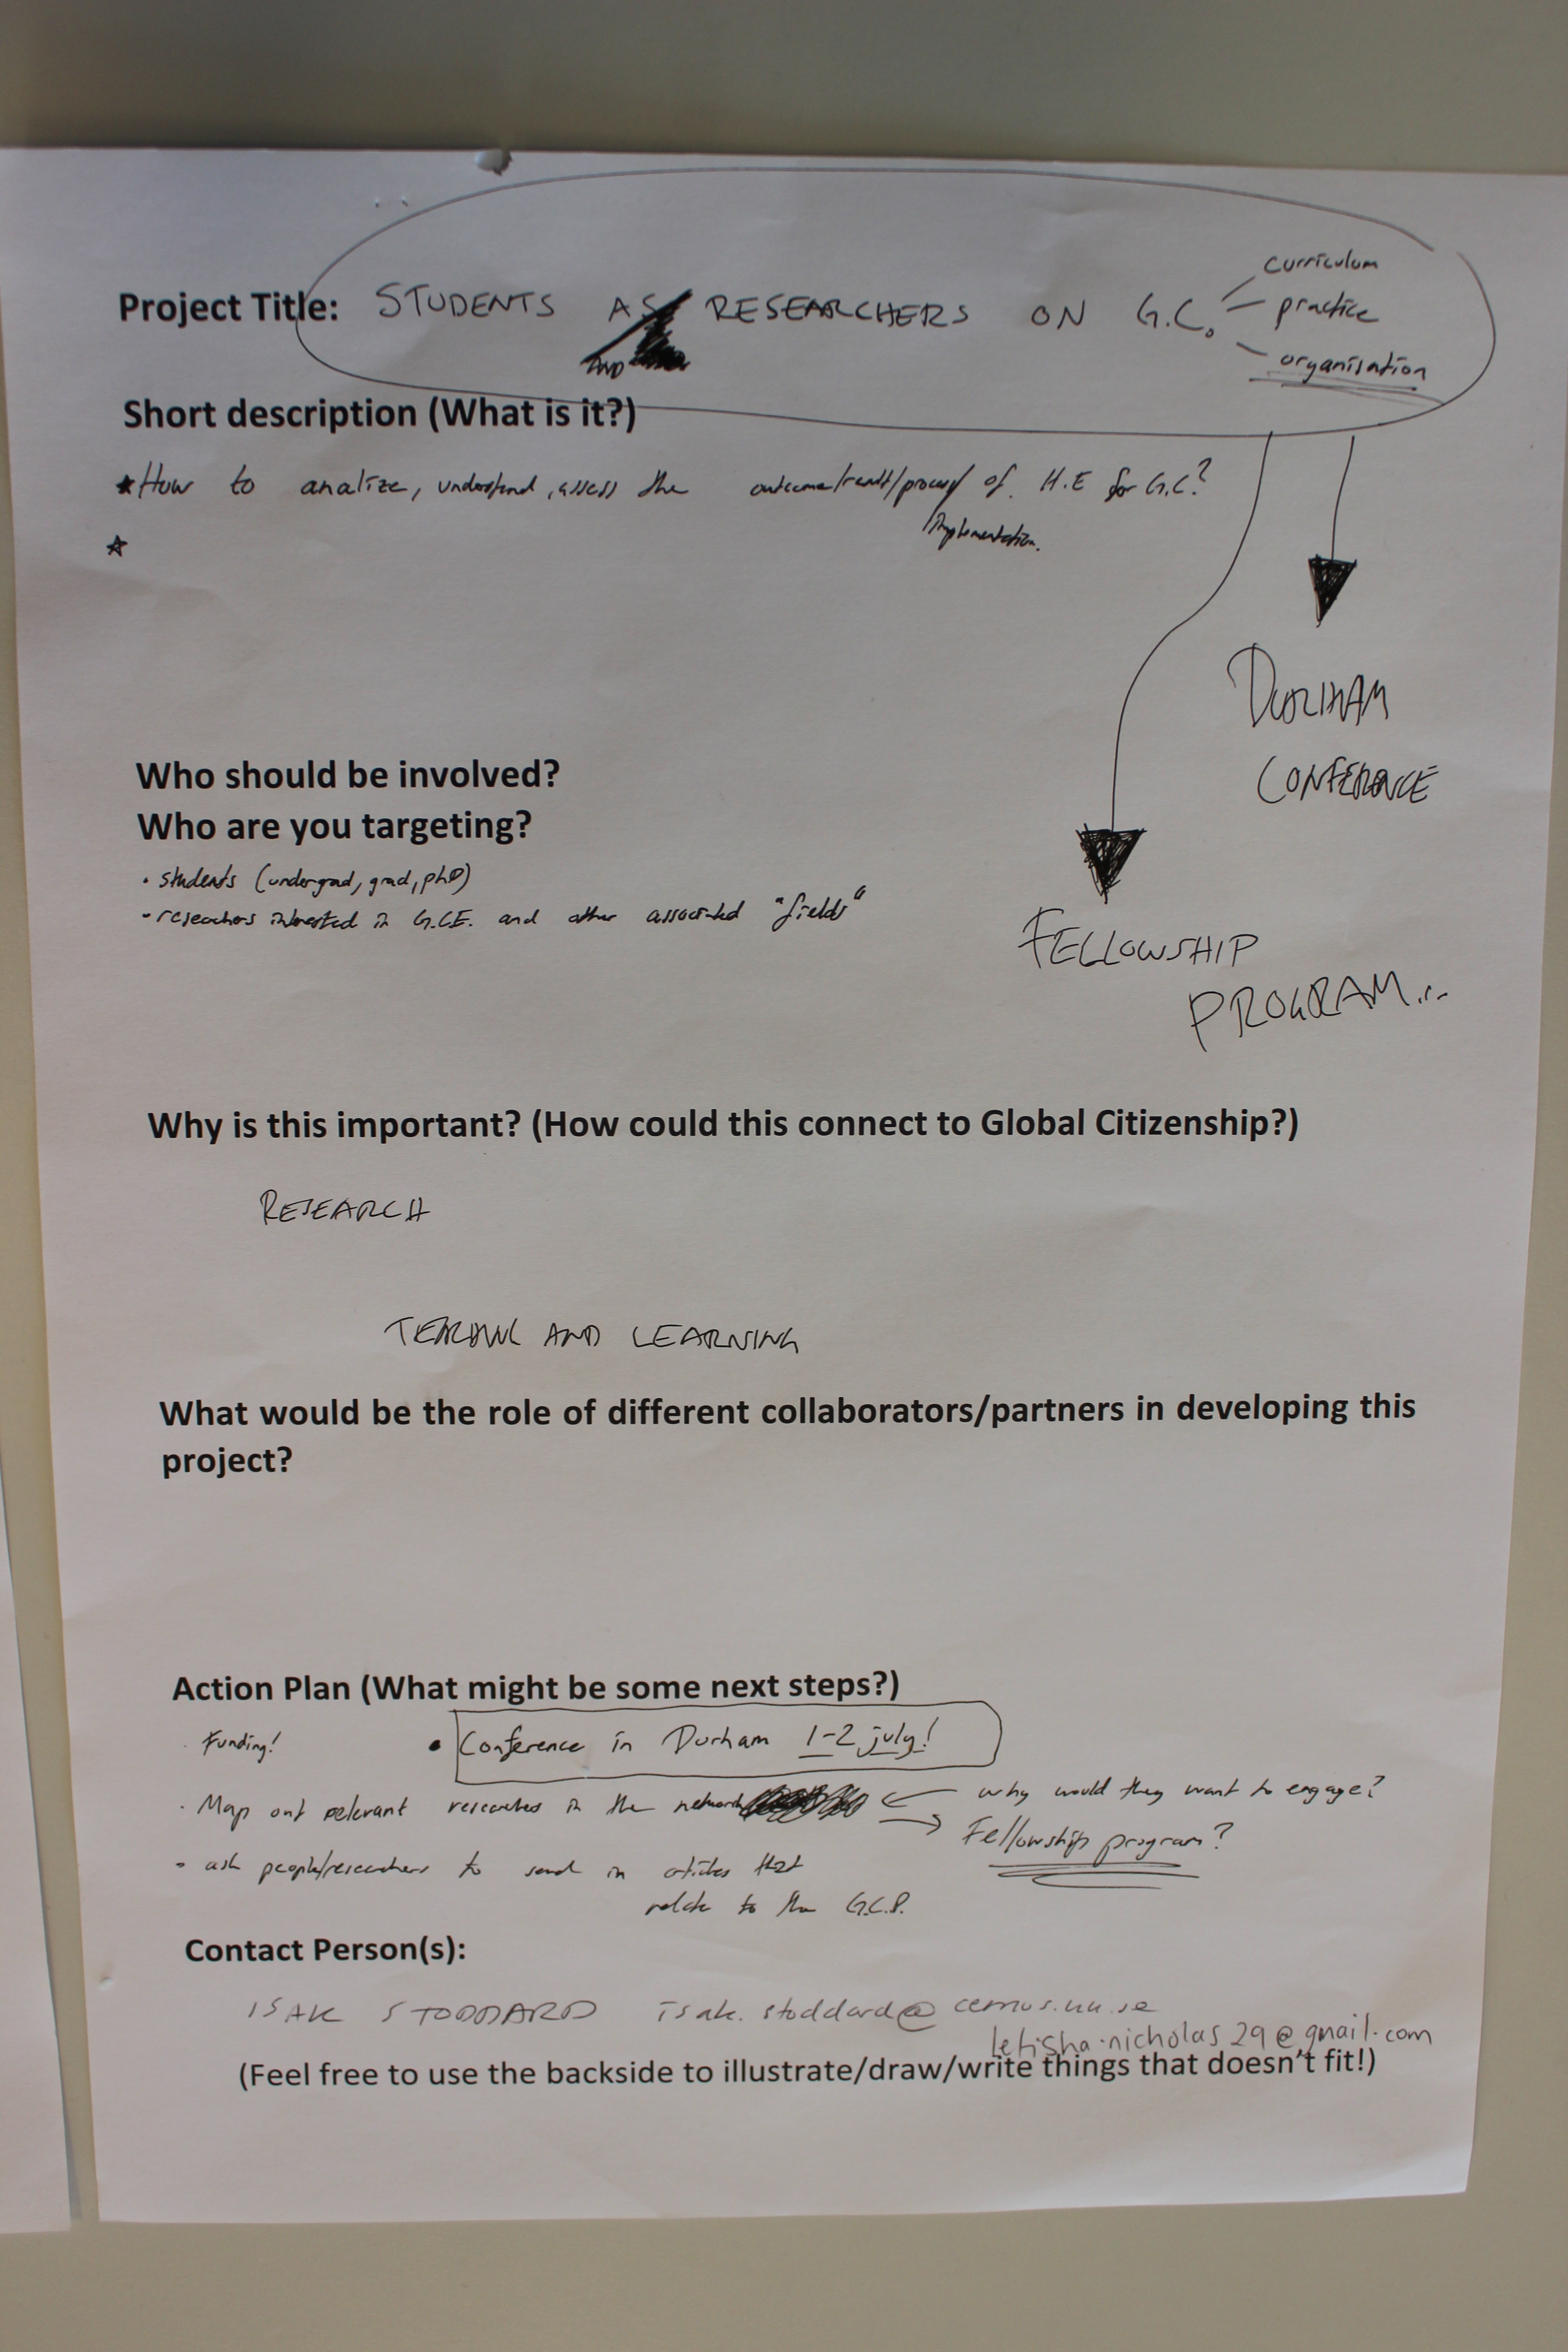 curriculum
Project Title: STUDENTS AS RESEARCHERS ON G.C. practice
AND
organisation
Short description (What is it?)
How to analize, understand, assess the outcome/result/process/ of H.E for G.C?
Implementation.
DURHAM
CONFERENCE
Who should be involved?
Who are you targeting?
• students (undergrad, grad, phD)
- reseachers interested in G.C.E. and other associated "fields"
FELLOWSHIP
PROGRAM...
Why is this important? (How could this connect to Global Citizenship?)
RESEARCH
AND LEARNING
What would be the role of different collaborators/partners in developing this
project?
Action Plan (What might be some next steps?)
· Funding! • Conference in Durham 1-2 july!
· Map out relevant researches in the network why would they want to engage?
Fellowship program?
• ask people/researchers to send in articles that
relate to the G.C.P.
Contact Person(s):
ISAK STODDARD isak.stoddard@cemus.uu.se
letisha.nicholas29@gmail.com
(Feel free to use the backside to illustrate/draw/write things that doesn't fit!)